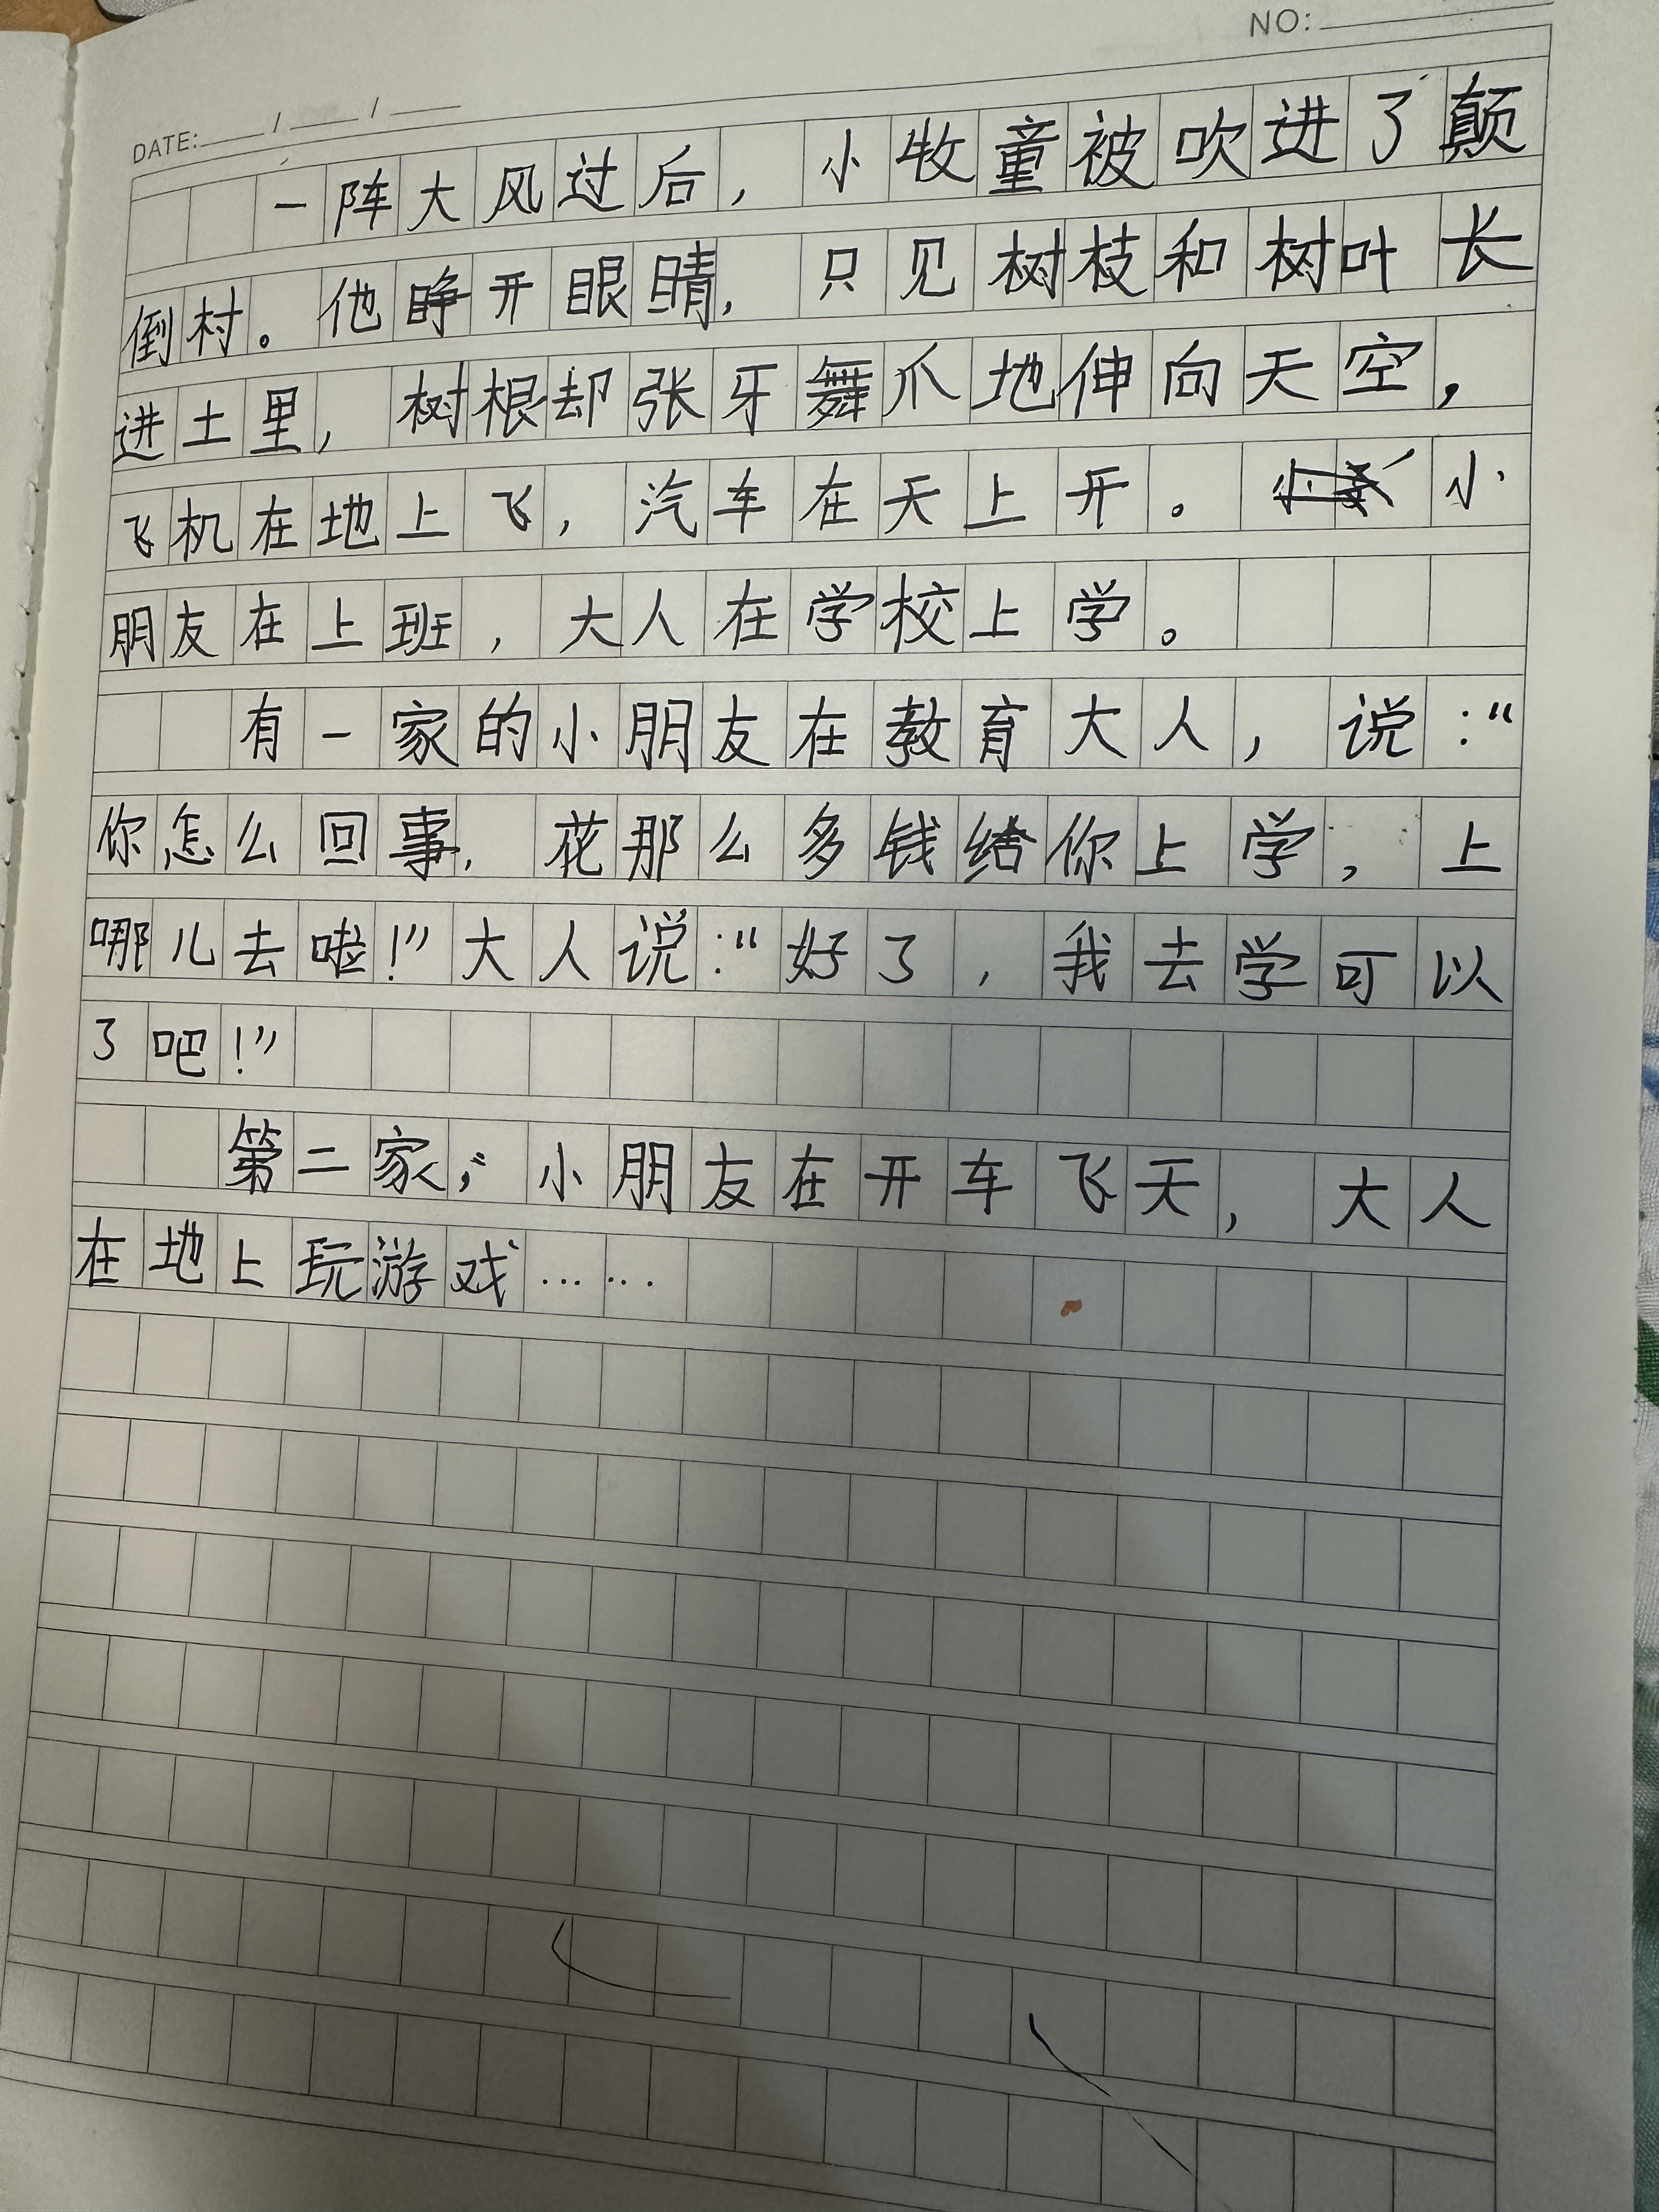 NO:
DATE: / /
一阵大风过后，小牧童被吹进了颠
倒村。他睁开眼睛，只见树枝和树叶长
进土里，树根却张牙舞爪地伸向天空，
飞机在地上飞，汽车在天上开。小
朋友在上班，大人在学校上学。
有一家的小朋友在教育大人，说：“
你怎么回事，花那么多钱给你上学，上
哪儿去啦！”大人说：“好了，我去学可以
了吧！”
第二家，小朋友在开车飞天，大人
在地上玩游戏……